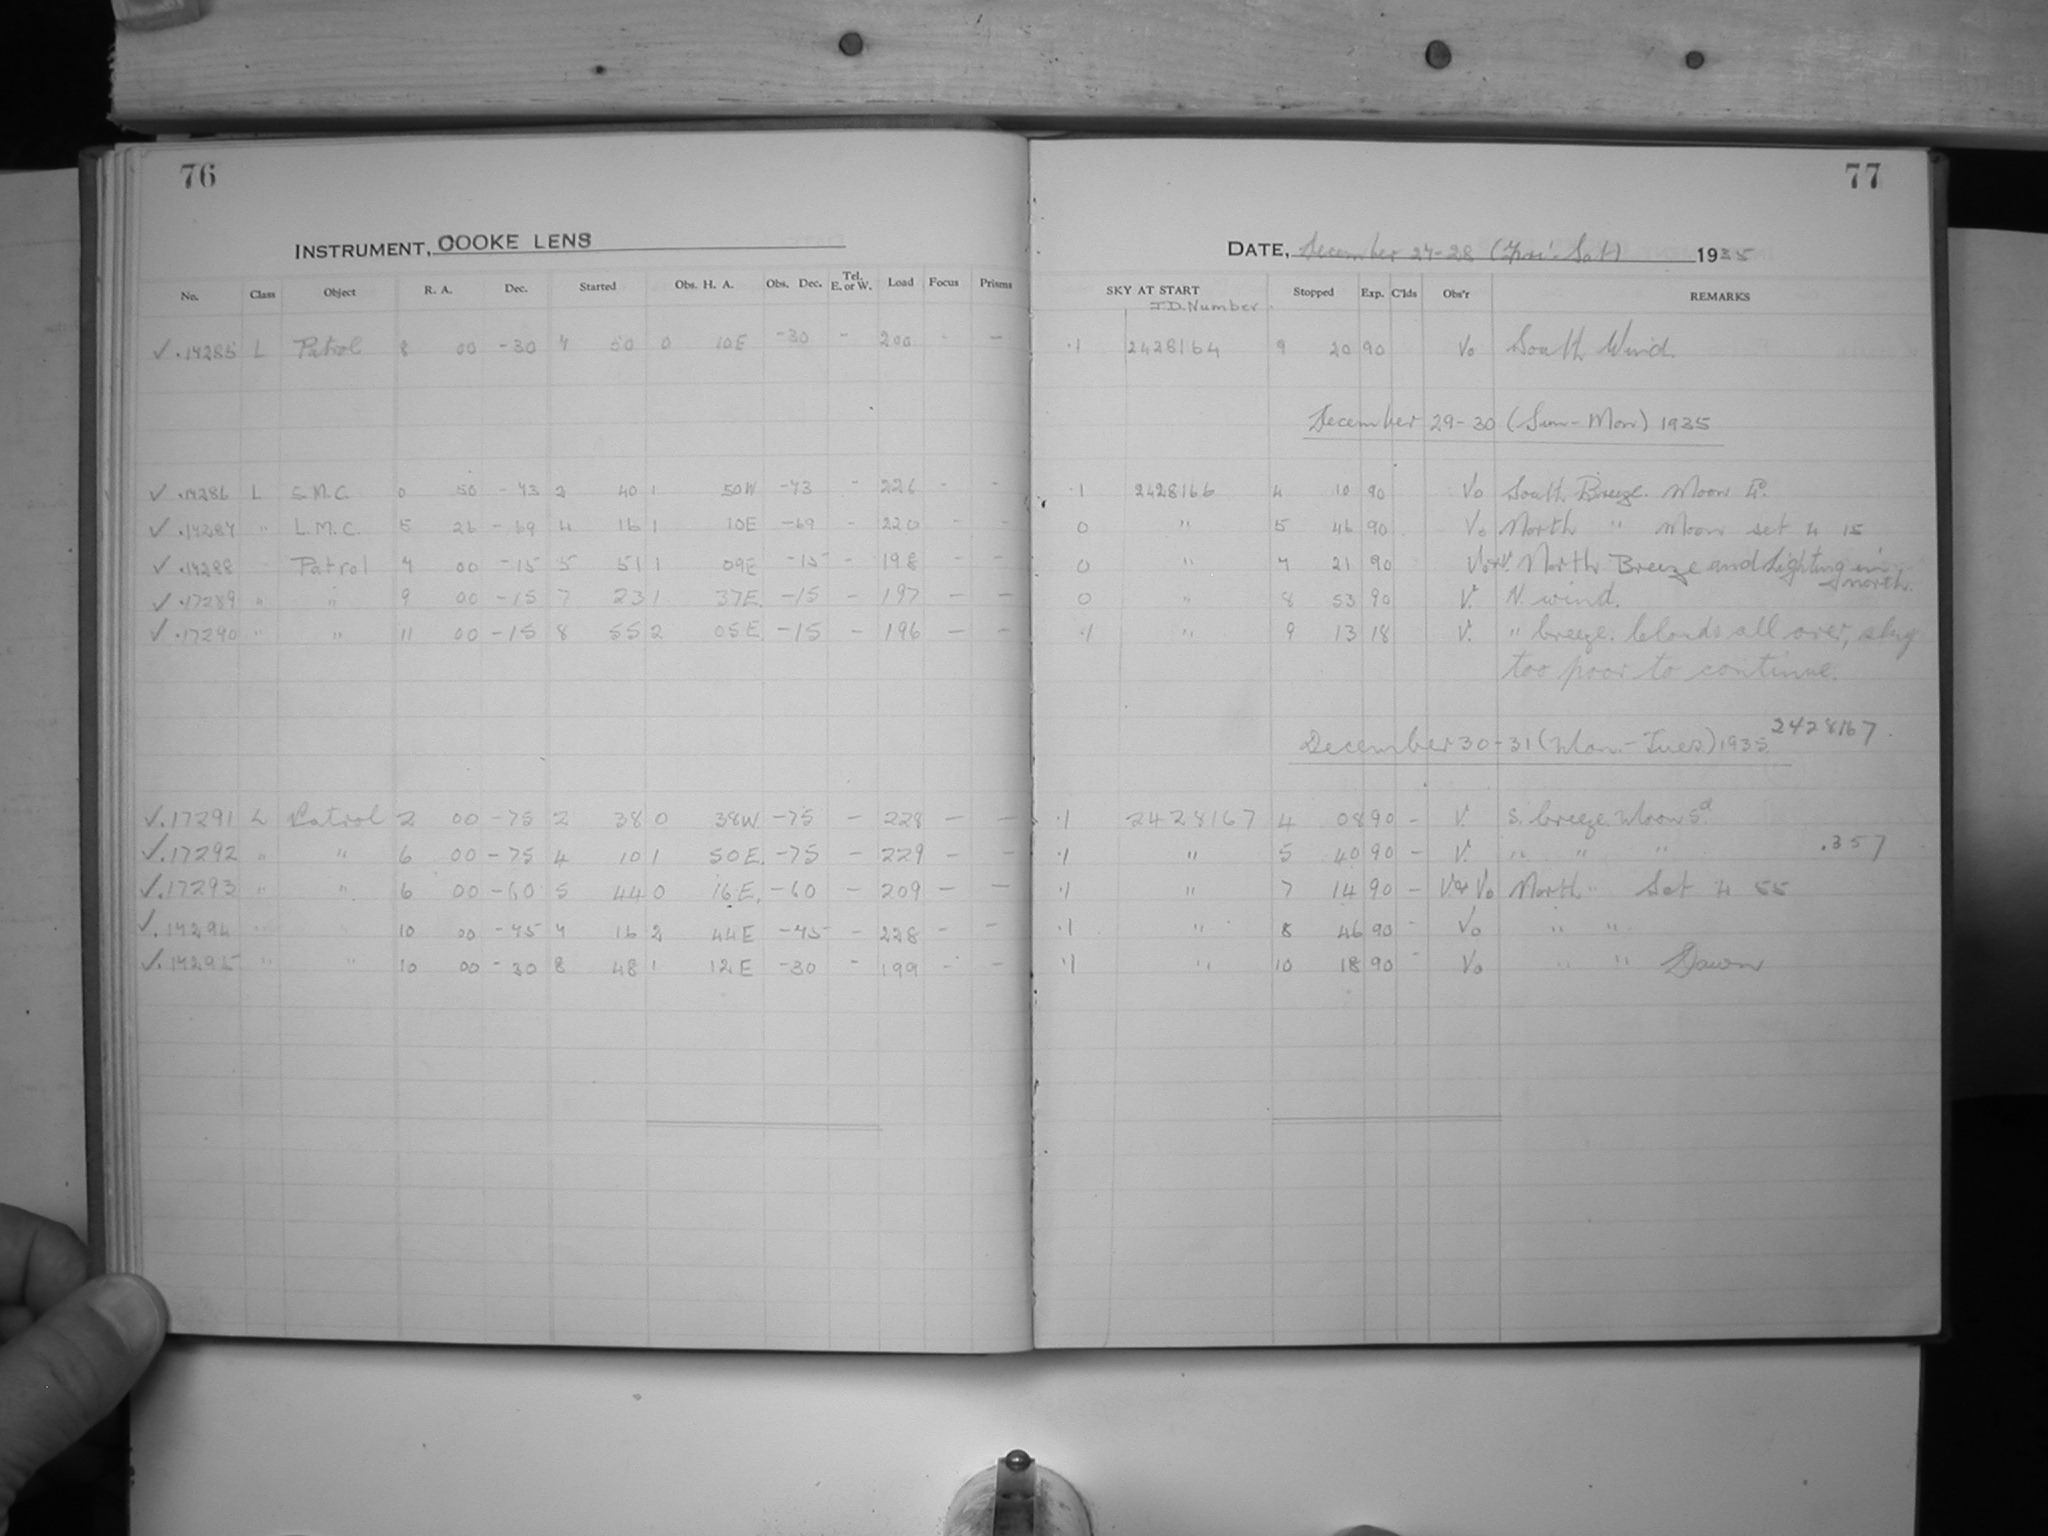 76
INSTRUMENT, COOKE LENS
No. Class Object R. A. Dec. Started Obs. H. A. Obs. Dec. Tel. E. or W. Load Focus Prisms
✓ .17285 L Patrol 8 00 -30 7 50 0 10E -30 - 200 - -
✓ .17286 L S.M.C. 0 50 -73 2 40 1 50W -73 - 226 - -
✓ .17287 " L.M.C. 5 26 -69 4 16 1 10E -69 - 220 - -
✓ .17288 Patrol 7 00 -15 5 51 1 09E -15 - 198 - -
✓ .17289 " " 9 00 -15 7 23 1 37E. -15 - 197 - -
✓ .17290 " " 11 00 -15 8 55 2 05E -15 - 196 - -
✓ .17291 L Patrol 2 00 -75 2 38 0 38W -75 - 228 - -
✓ .17292 " " 6 00 -75 4 10 1 50E. -75 - 229 - -
✓ .17293 " " 6 00 -60 5 44 0 16E. -60 - 209 - -
✓ .17294 " " 10 00 -45 7 16 2 44E -45 - 228 - -
✓ .17295 " " 10 00 -30 8 48 1 12E -30 - 199 - -
77
DATE, December 27-28 (Fri-Sat) 1935
SKY AT START Stopped Exp. C'lds Obs'r REMARKS
J.D. Number.
.1 2428164 9 20 90 Vo South Wind.
December 29-30 (Sun-Mon) 1935
.1 2428166 4 10 90 Vo South Breeze. Moon
0 " 5 46 90 Vo North " Moon set 4 15
0 " 7 21 90 North Breeze and Lighting in north.
0 " 8 53 90 V. N. wind.
.1 " 9 13 18 V. " breeze. Clouds all over, sky
too poor to continue.
December 30-31 (Mon-Tues) 1935. 2428167.
.1 2428167 4 08 90 - V. S. breeze. Moon 5d.
.1 " 5 40 90 - V. " " " .357
.1 " 7 14 90 - V. & Vo North " Set 4 55
.1 " 8 46 90 - Vo " "
.1 " 10 18 90 - Vo " " Dawn